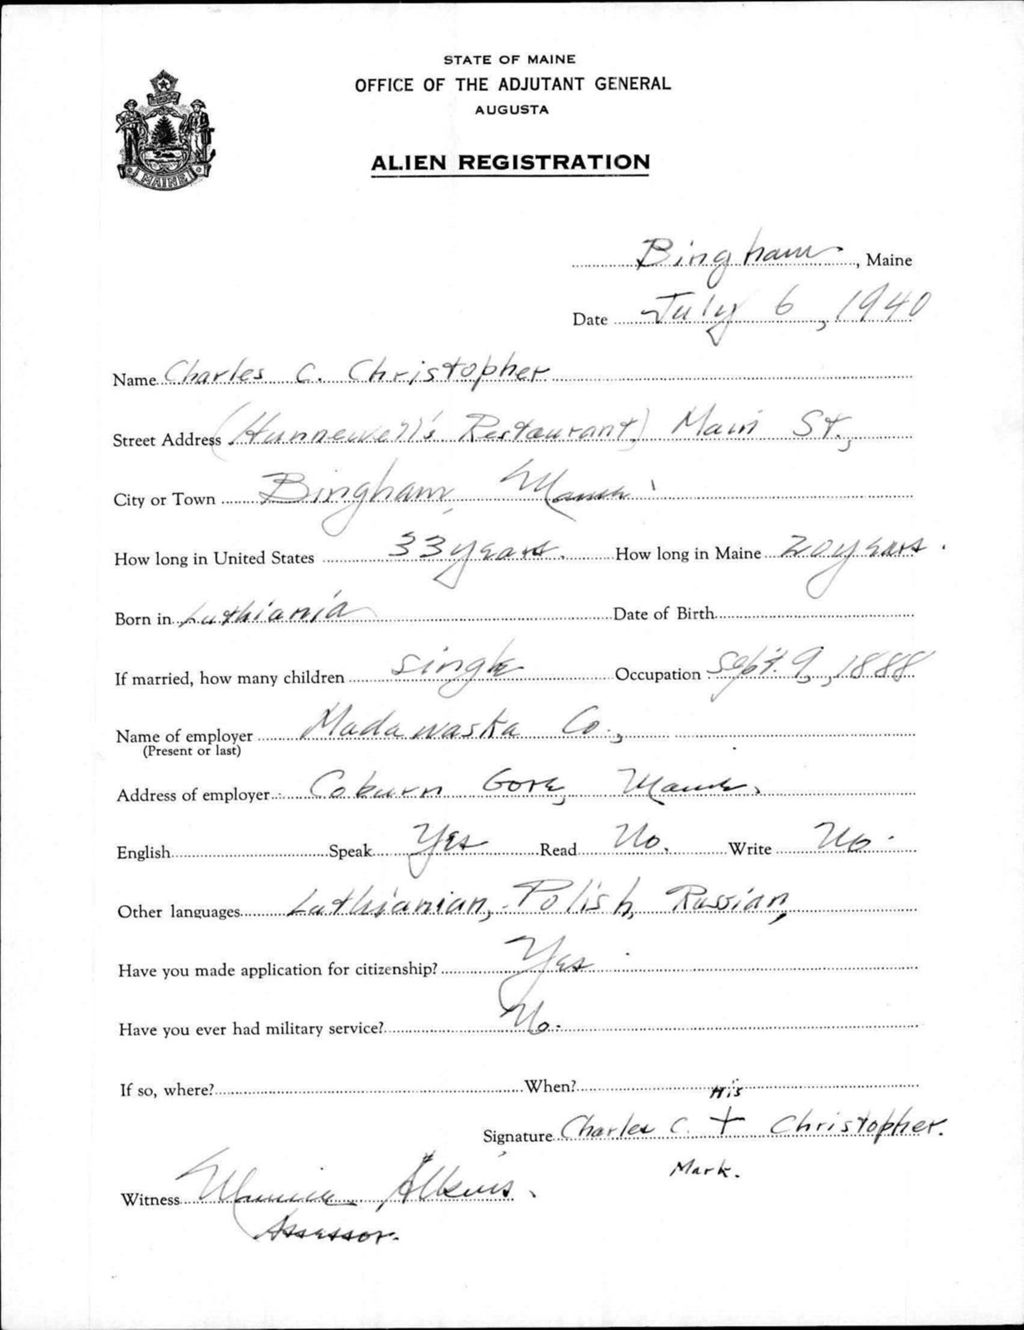 STATE OF MAINE
OFFICE OF THE ADJUTANT GENERAL
AUGUSTA
ALIEN REGISTRATION
MAINE
Bingham, Maine
Date July 6, 1940
Name Charles C. Christopher
Street Address (Hunnewell's Restaurant) Main St.,
City or Town Bingham, Maine
How long in United States 33 years. How long in Maine 20 years.
Born in Luthiania Date of Birth
If married, how many children single Occupation Sept. 9, 1888
Name of employer Madawaska Co.,
(Present or last)
Address of employer Coburn Gore, Maine.
English Speak Yes Read No. Write No.
Other languages Luthianian, Polish, Russian,
Have you made application for citizenship? Yes
Have you ever had military service? No.
If so, where? When?
His
Signature Charles C. + Christopher.
Mark.
Witness Maurice Atkins.
Assessor.